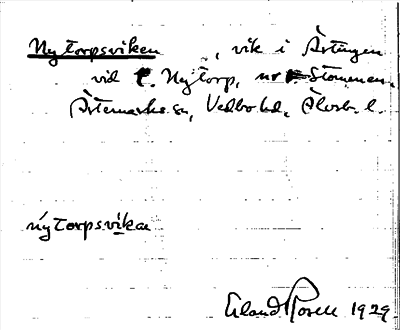 Nytorpsviken, vik i Ärtingen
vid t. Nytorp, nr Stommen.
Ärtemarks sn, Vedbo hd. Älvsb. l.
nýtorpsvikan
Erland Rosell 1929